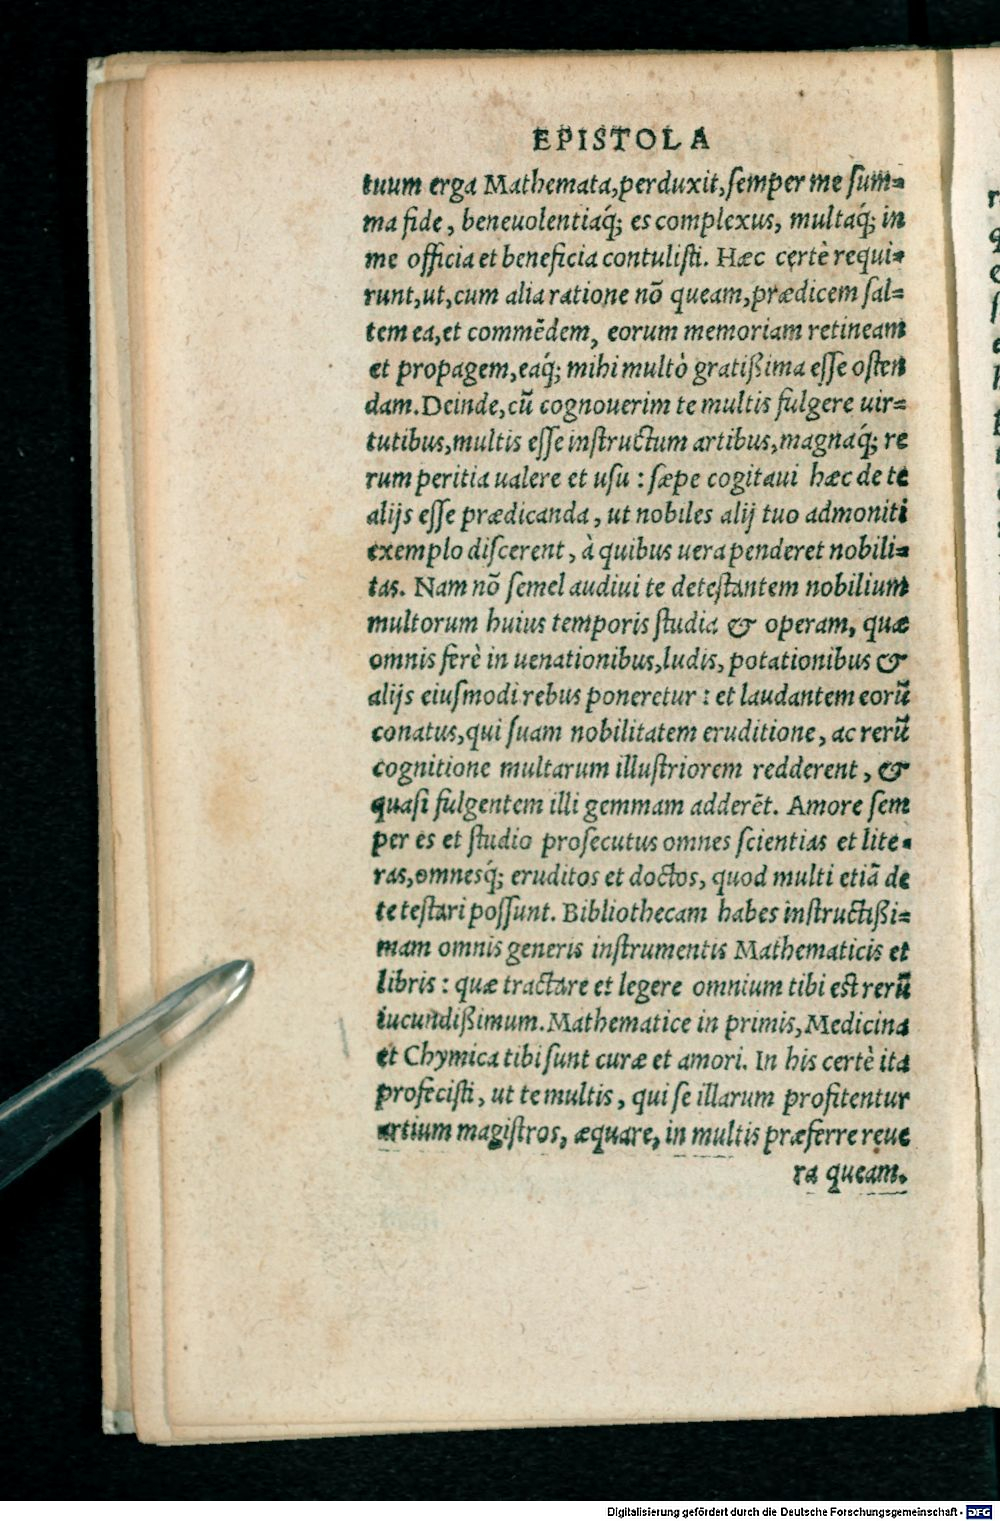 EPISTOLA
tuum erga Mathemata,perduxit,semper me sum=
ma fide, beneuolentiaq́; es complexus, multaq́; in
me officia et beneficia contulisti. Hæc certè requi=
runt,ut,cum alia ratione nõ queam,prædicem sal=
tem ea,et commẽdem, eorum memoriam retineam
et propagem,eaq́; mihi multò gratißima esse osten
dam.Deinde,cũ cognouerim te multis fulgere uir=
tutibus,multis esse instructum artibus,magnaq́; re
rum peritia ualere et usu : sæpe cogitaui hæc de te
alijs esse prædicanda, ut nobiles alij tuo admoniti
exemplo discerent, à quibus uera penderet nobili=
tas. Nam nõ semel audiui te detestantem nobilium
multorum huius temporis studia & operam, quæ
omnis ferè in uenationibus,ludis, potationibus &
alijs eiusmodi rebus poneretur : et laudantem eorũ
conatus,qui suam nobilitatem eruditione, ac rerũ
cognitione multarum illustriorem redderent, &
quasi fulgentem illi gemmam adderẽt. Amore sem
per es et studio prosecutus omnes scientias et lite=
ras,omnesq́; eruditos et doctos, quod multi etiã de
te testari possunt. Bibliothecam habes instructißi=
mam omnis generis instrumentis Mathematicis et
libris : quæ tractare et legere omnium tibi est rerũ
iucundißimum.Mathematice in primis,Medicina
et Chymica tibi sunt curæ et amori. In his certè ita
profecisti, ut te multis, qui se illarum profitentur
artium magistros, æquare, in multis præferre reue
ra queam.
Digitalisierung gefördert durch die Deutsche Forschungsgemeinschaft - DFG